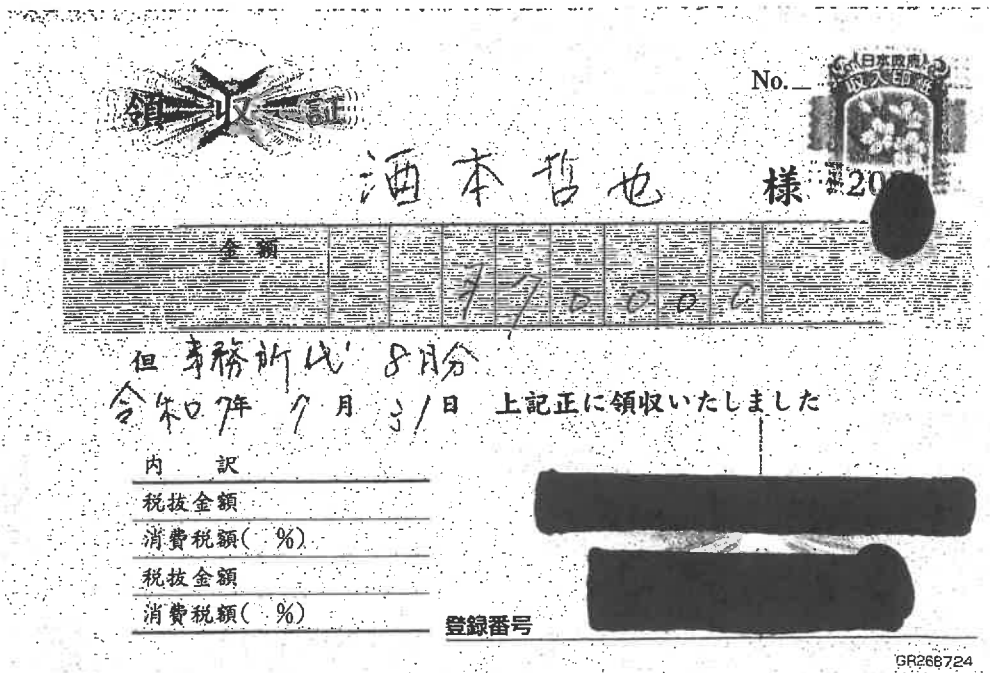 領収証
No.
日本政府
収入印紙
酒本哲也 様
20
金額
770000
但 事務所代 8月分
令和7年 7月31日 上記正に領収いたしました
内 訳
税抜金額
消費税額( %)
税抜金額
消費税額( %)
登録番号
GR268724